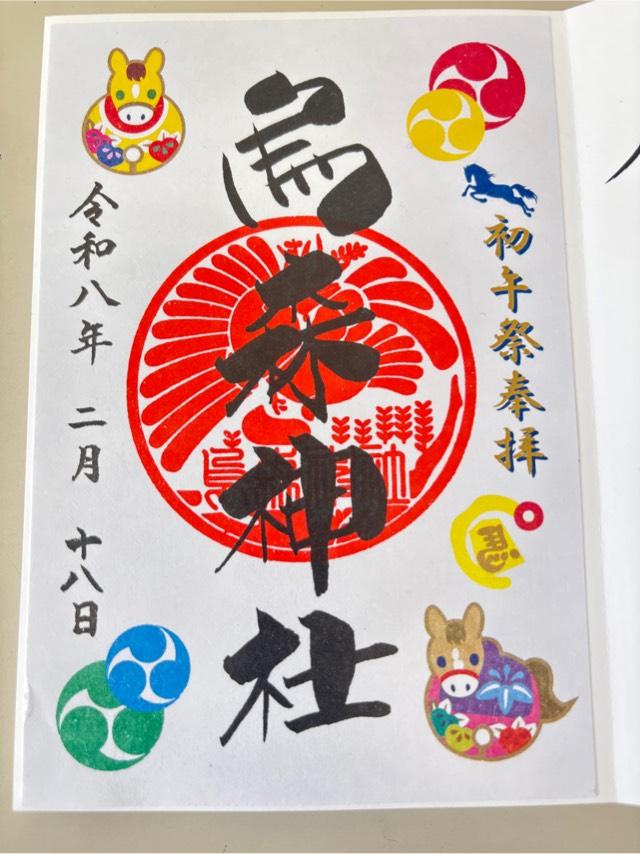 初午祭奉拝
烏森神社
令和八年 二月 十八日
馬